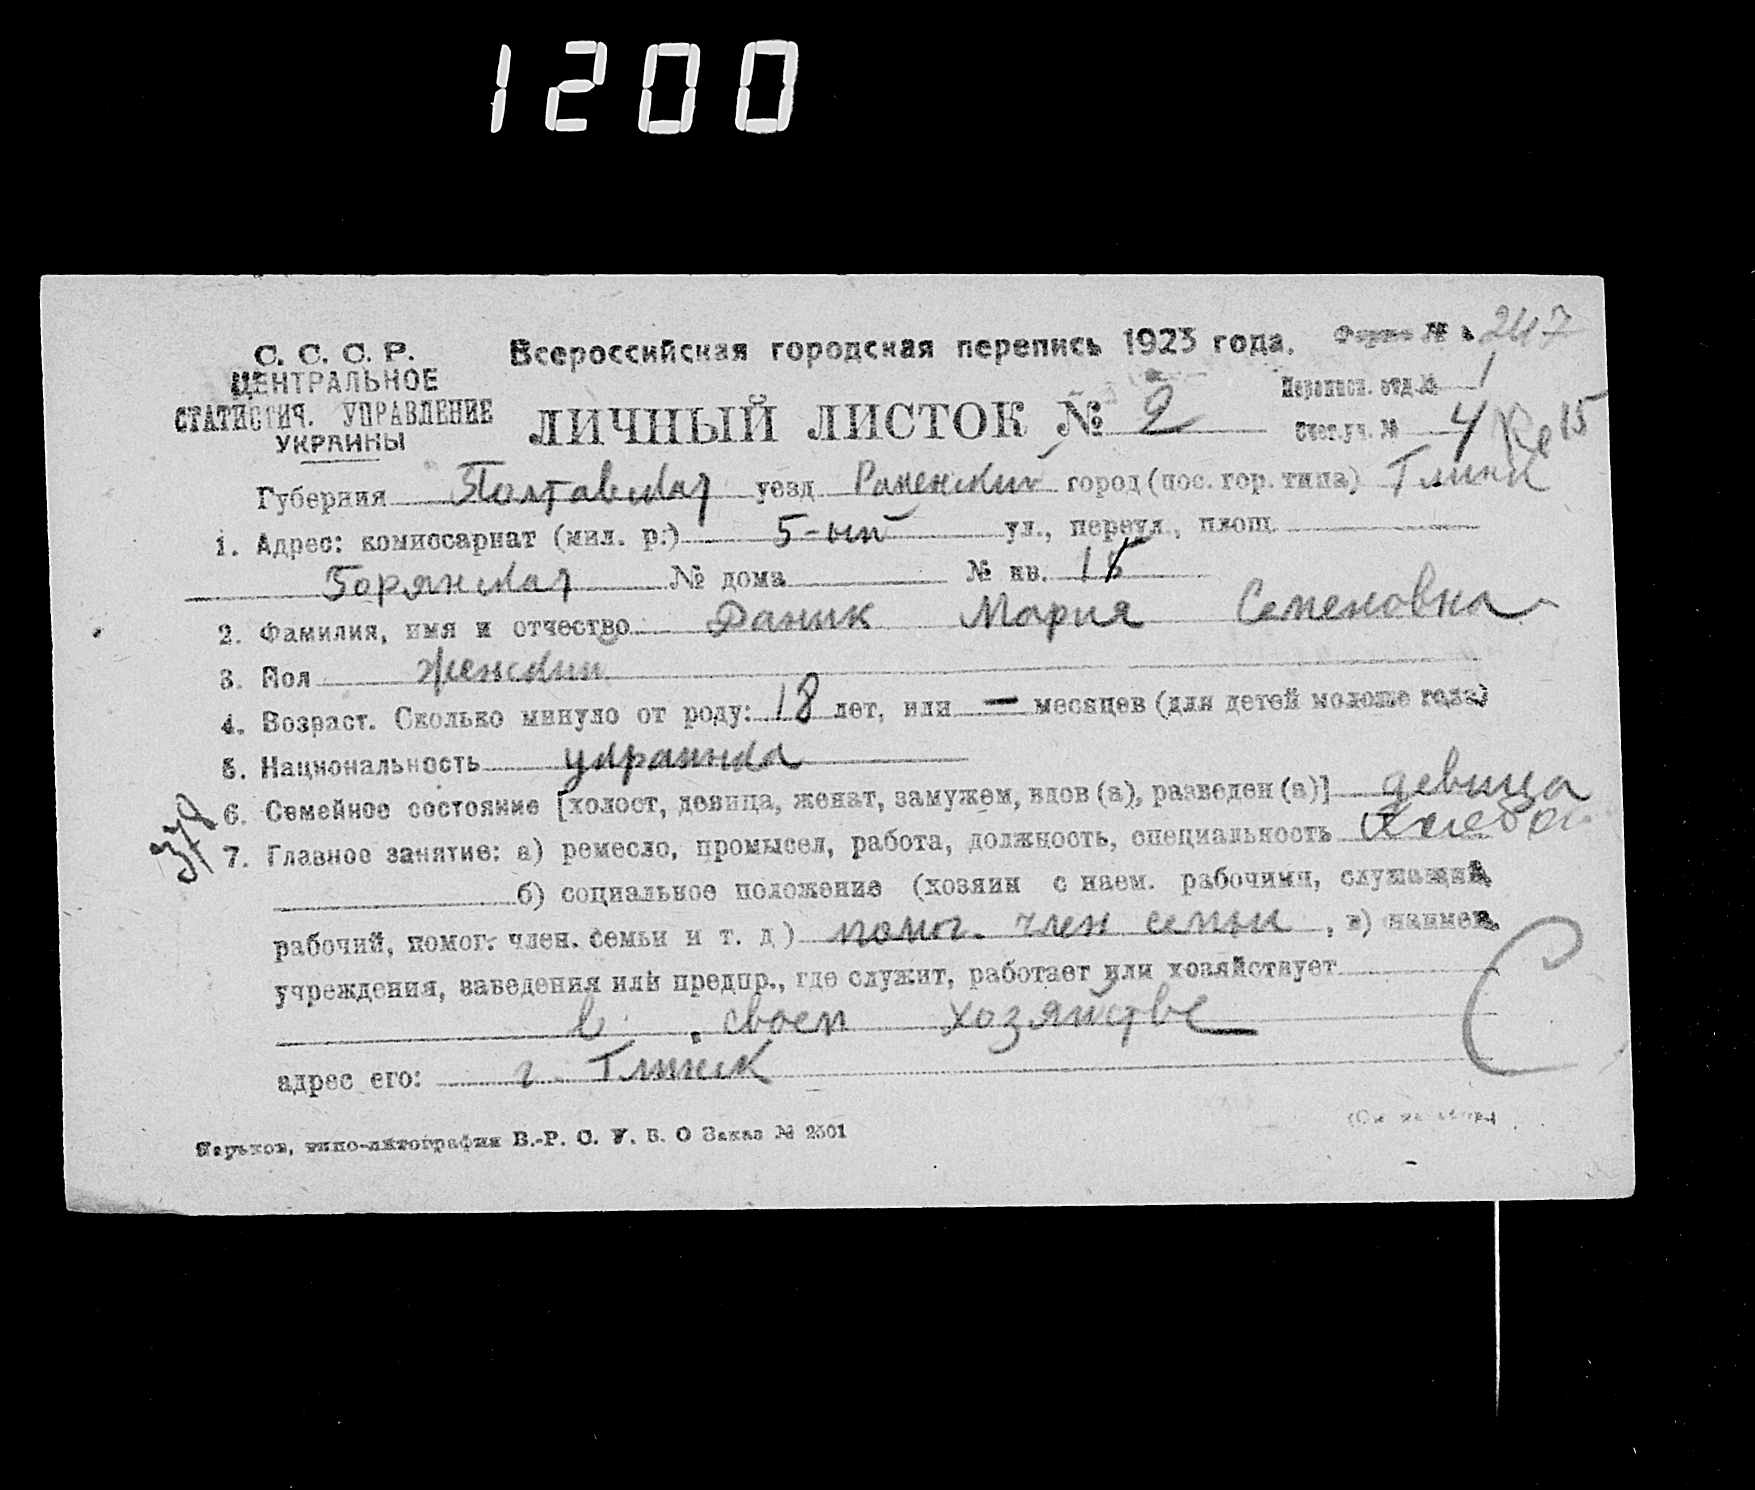 1200
С. С. С. Р.
ЦЕНТРАЛЬНОЕ
СТАТИСТИЧ. УПРАВЛЕНИЕ
УКРАИНЫ
Всероссийская городская перепись 1923 года.
Форма № 247
ЛИЧНЫЙ ЛИСТОК № 2
Переписн. отд. № 1
Счет. уч. № 4 15
Губерния Полтавская уезд Раменский город (пос. гор. типа) Глинск
1. Адрес: комиссариат (мил. р.) 5-ый ул., переул., площ.
Борянская № дома № кв. 15
2. Фамилия, имя и отчество Даник Мария Семеновна
3. Пол женский
4. Возраст. Сколько минуло от роду: 18 лет, или — месяцев (для детей моложе года)
5. Национальность украинка
6. Семейное состояние [холост, девица, женат, замужем, вдов (а), разведен (а)] девица
378
7. Главное занятие: а) ремесло, промысел, работа, должность, специальность
б) социальное положение (хозяин с наем. рабочими, служащий,
рабочий, помог. член. семьи и т. д) помог. член семьи, в) наимен.
учреждения, заведения или предпр., где служит, работает или хозяйствует
в своем хозяйстве
С
адрес его: г. Глинск
Харьков, типо-литография В.-Р. С. У. В. О Заказ № 2501